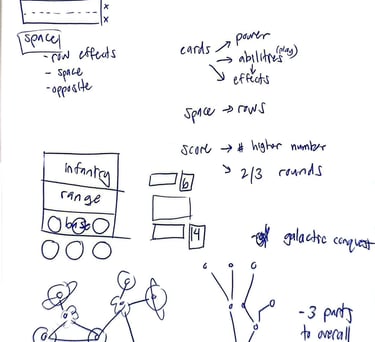 x
x
space
- row effects
- space
- opposite
cards → power
→ abilities (play)
→ effects
space → rows
score → # higher number
→ 2/3 rounds
infantry
range
base
6
14
galactic conquest
3
- 3 parts
to overall